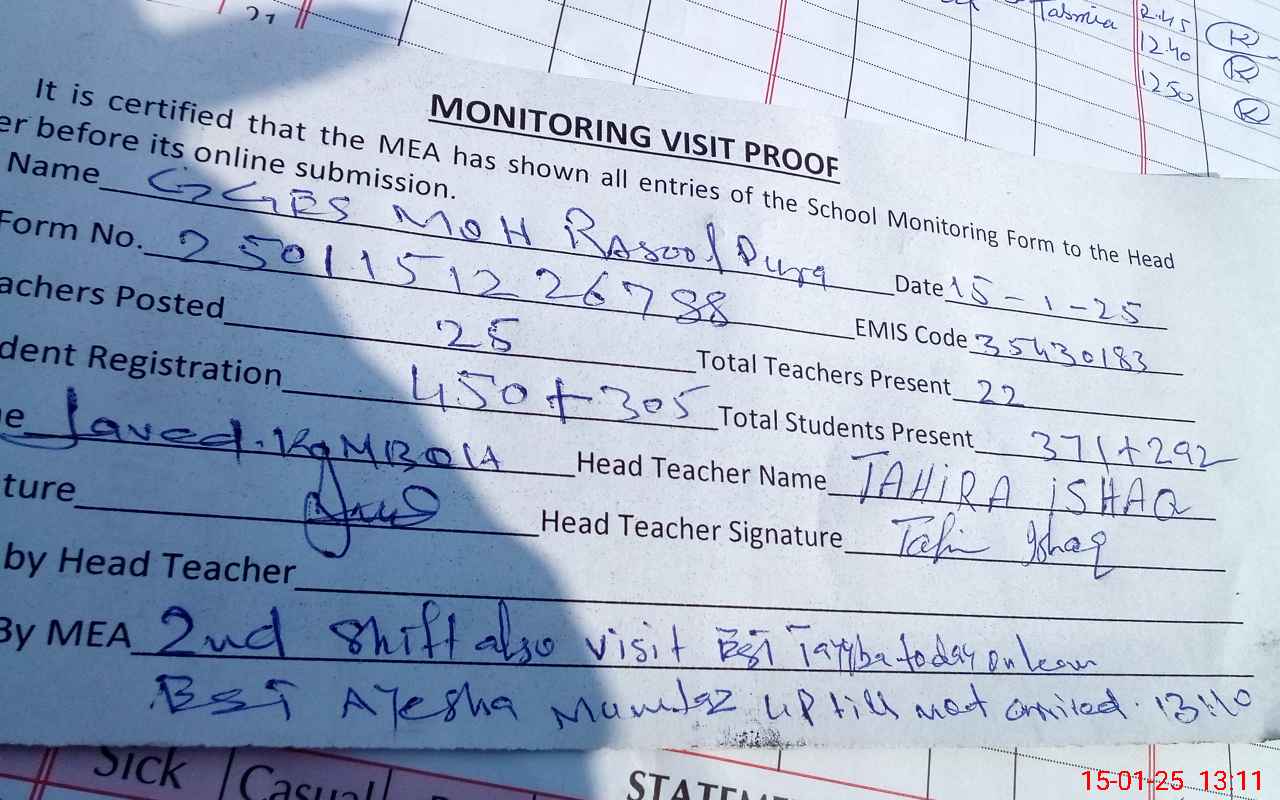 Tabmia 2.45
1240
1250
MONITORING VISIT PROOF
It is certified that the MEA has shown all entries of the School Monitoring Form to the Head
er before its online submission.
Name GGES MOH RAsool Pura Date 15-1-25
Form No. 2501151226788 EMIS Code 35430183
achers Posted 25 Total Teachers Present 22
dent Registration 450+305 Total Students Present 371+292
e Javed.KaMBOH Head Teacher Name TAHiRA iSHAQ
ture Head Teacher Signature
by Head Teacher
By MEA 2nd Shift also visit EST Tayyba today on leave
EST AYesha Mumtaz up till not arrived. 13:10
Sick Casual
STATEM
15-01-25 13:11